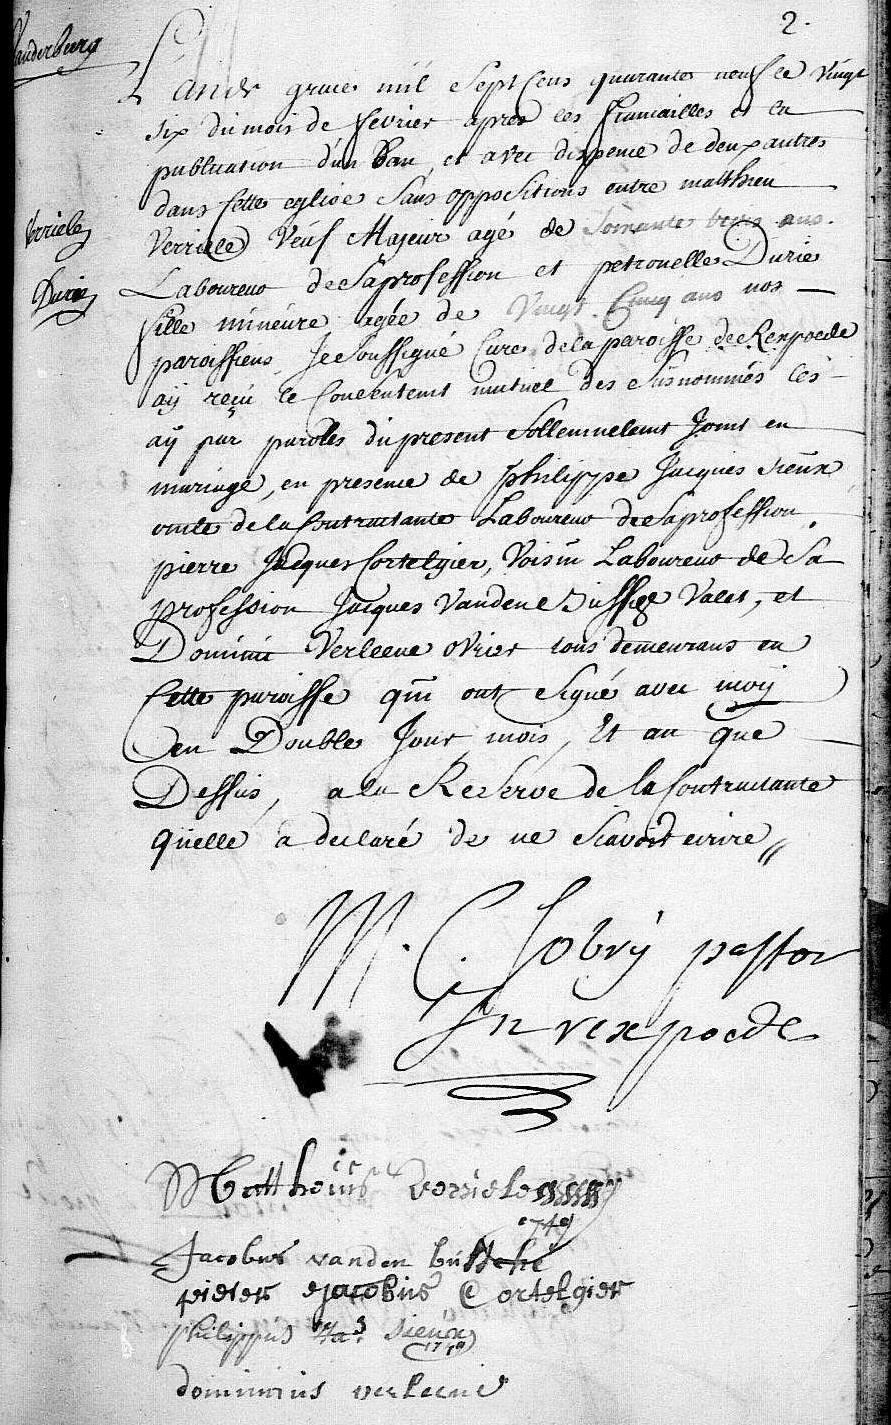 2.
Vanderberg
L'an de grace mil Sept Cens quarante neuf le Vingt
six du mois de fevrier apres les fiancailles et la
publication d'un Ban, et avec dispence de deux autres
dans Cette eglise Sans oppositions entre matthieu
Verriele
Verriele Veuf Majeur agé de Soixante trois ans.
Laboureur de Sa profession et petronelle Durie
Durie
fille mineure agée de Vingt Cinq ans nos
paroissiens Je Soussigné Curé de la paroisse de Rexpoede
aÿ reçu le Consentemt mutuel des Susnommés les
aÿ par paroles du present Sollemnelemt Joint en
mariage, en presence de philippe Jacques Sieux
oncle de la Contractante Laboureur de Sa profession,
pierre Jacques Cortelgier, Voisin Laboureur de Sa
profession Jacques Vanden Bussche Valet, et
Dominic Verleene ovrier tous demeurans en
Cette paroisse qui ont Signé avec moÿ
en Double Jour, mois, Et an que
Dessus, a la Reserve de la Contractante
quelle a declaré de ne Scavoir ecrire //
M. C. Cobrÿ pastor
In rexpoede
Mattheüs verriele
1749
Jacobus vanden büssche
pieter Jacobüs Cortelgier
philippus Jas Sieux
1749
dominicus verleene